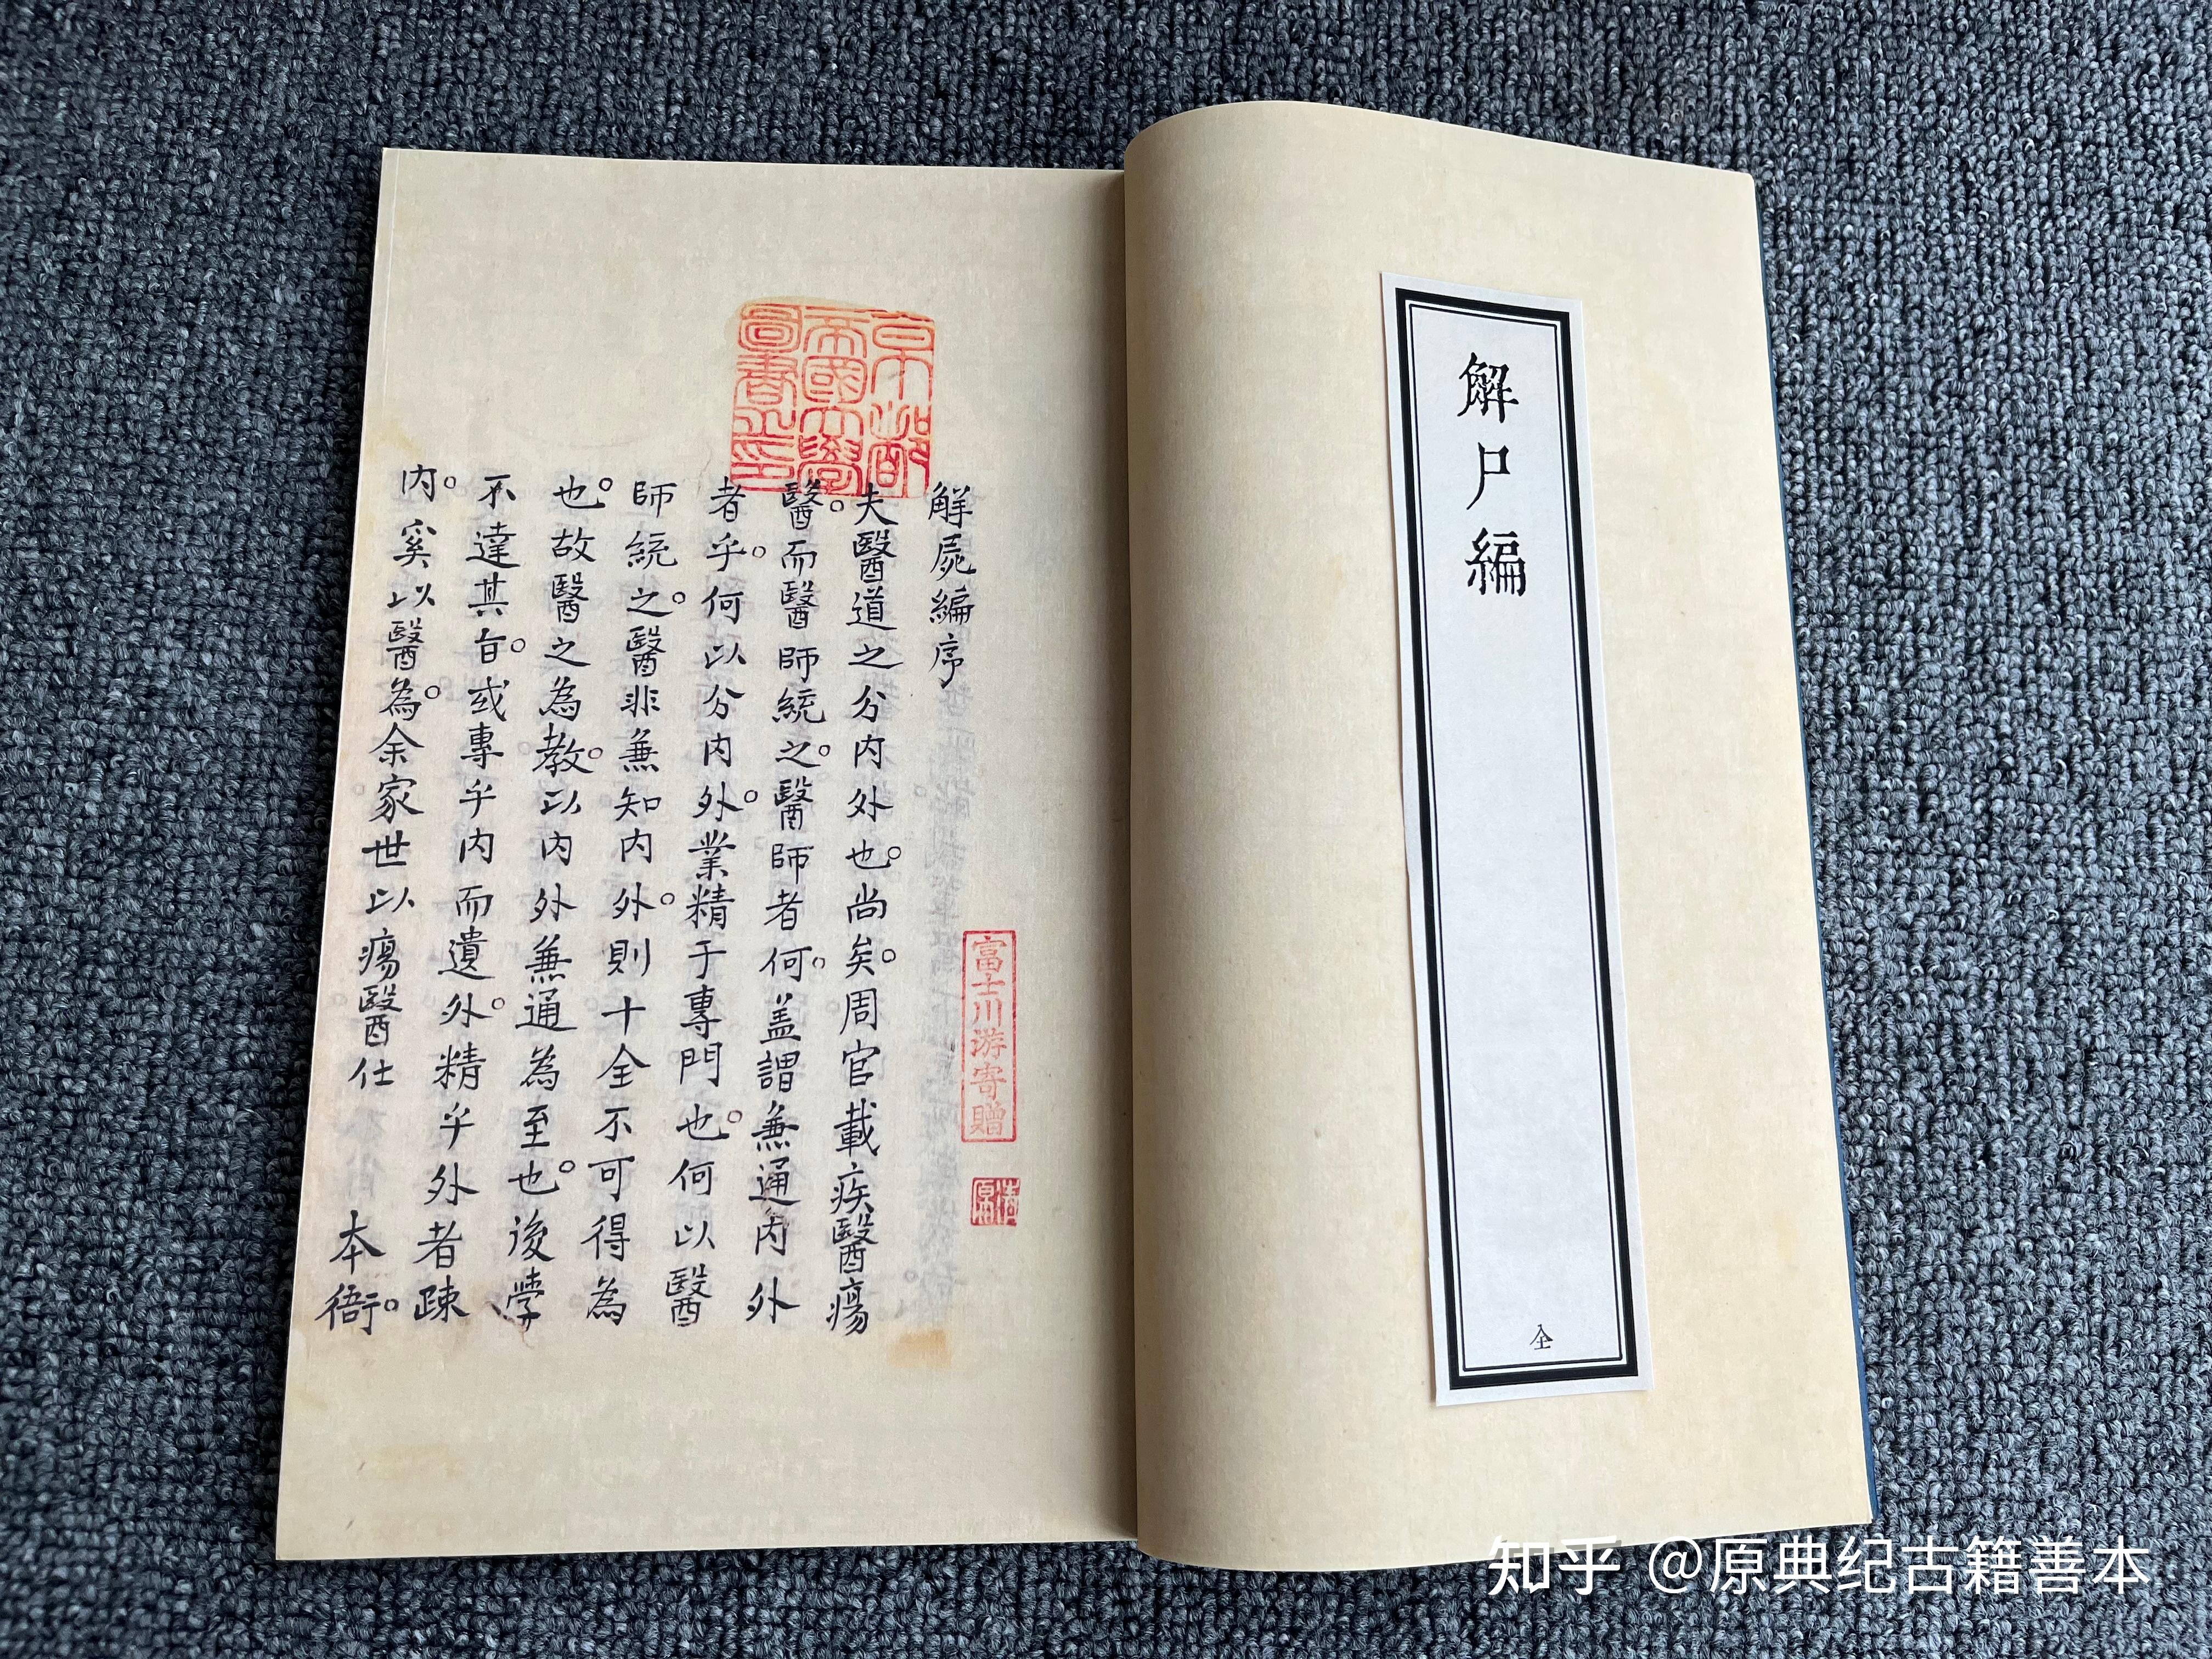 解尸編
全
京都
帝國大學
圖書之印
解屍編序
夫醫道之分内外也尚矣周官載疾醫瘍
醫而醫師統之醫師者何盖謂兼通内外
者乎何以分内外業精于專門也何以醫
師統之醫非兼知内外則十全不可得為
也故醫之為教以内外兼通為至也後學
不達其旨或專乎内而遺外精乎外者疎
内奚以醫為余家世以瘍醫仕 本衙
富士川游寄贈
知乎 @原典纪古籍善本